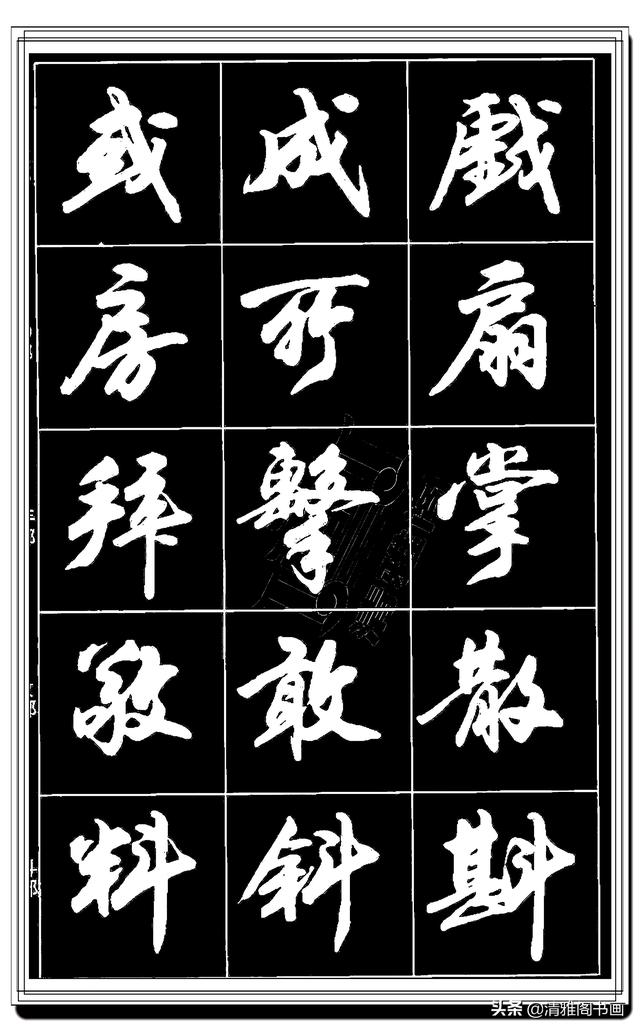 或 成 戲
房 所 扇
拜 擊 掌
敬 敢 散
料 斜 斟
头条 @清雅阁书画